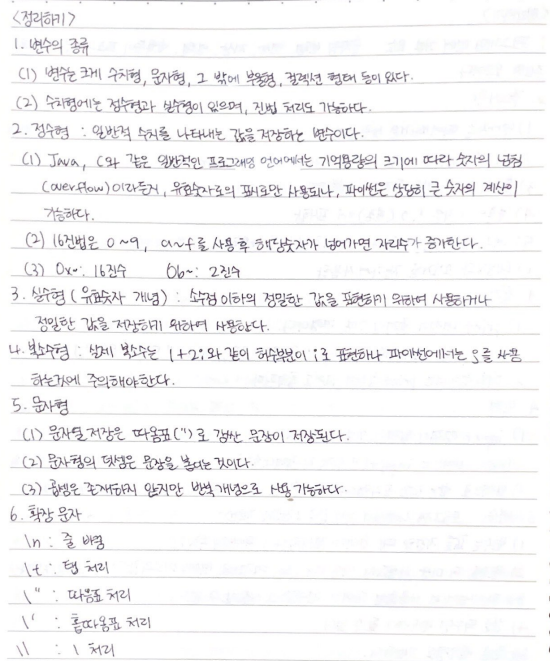 <정리하기>
1. 변수의 종류
(1) 변수는 크게 수치형, 문자형, 그 밖에 부울형, 컬렉션 형태 등이 있다.
(2) 수치형에는 정수형과 실수형이 있으며, 진법 처리도 가능하다.
2. 정수형 : 일반적 수치를 나타내는 값을 저장하는 변수이다.
(1) Java, C와 같은 일반적인 프로그래밍 언어에서는 기억용량의 크기에 따라 숫자의 넘침
(overflow)이라든지, 유효숫자로의 표기로만 사용되나, 파이썬은 상당히 큰 숫자의 계산이
가능하다.
(2) 16진법은 0~9, a~f를 사용 후 해당숫자가 넘어가면 자리수가 증가한다.
(3) 0x~: 16진수 0b~: 2진수
3. 실수형 (유효숫자 개념) : 소수점이하의 정밀한 값을 표현하기 위하여 사용하거나
정밀한 값을 저장하기 위하여 사용한다.
4. 복소수형 : 실제 복소수는 1+2i와 같이 허수부분이 i로 표현하나 파이썬에서는 j를 사용
하는것에 주의해야한다.
5. 문자형
(1) 문자열 저장은 따옴표(")로 감싼 문장이 저장된다.
(2) 문자형의 덧셈은 문장을 붙이는 것이다.
(3) 곱셈은 존재하지 않지만 반복개념으로 사용 가능하다.
6. 확장 문자
\n : 줄 바꿈
\t : 탭 처리
\" : 따옴표 처리
\' : 홑따옴표 처리
\\ : \ 처리